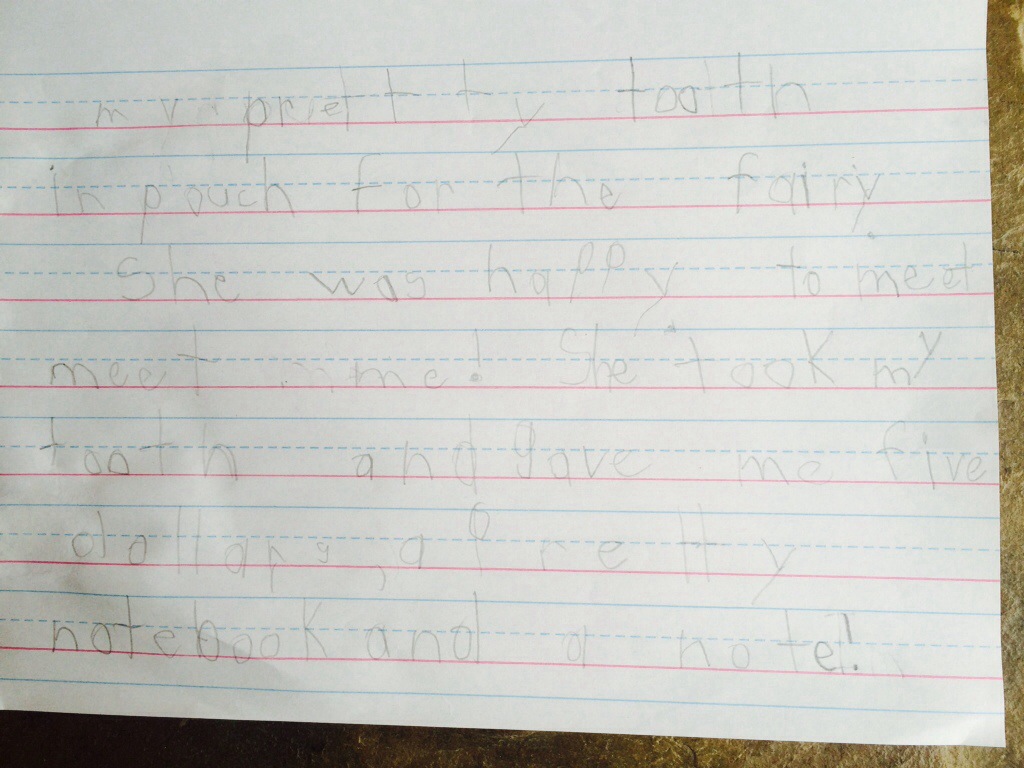 my pretty tooth
in pouch for the fairy
She was happy to meet
meet me! She took my
tooth and gave me five
dollars, a pretty
notebook and a note!